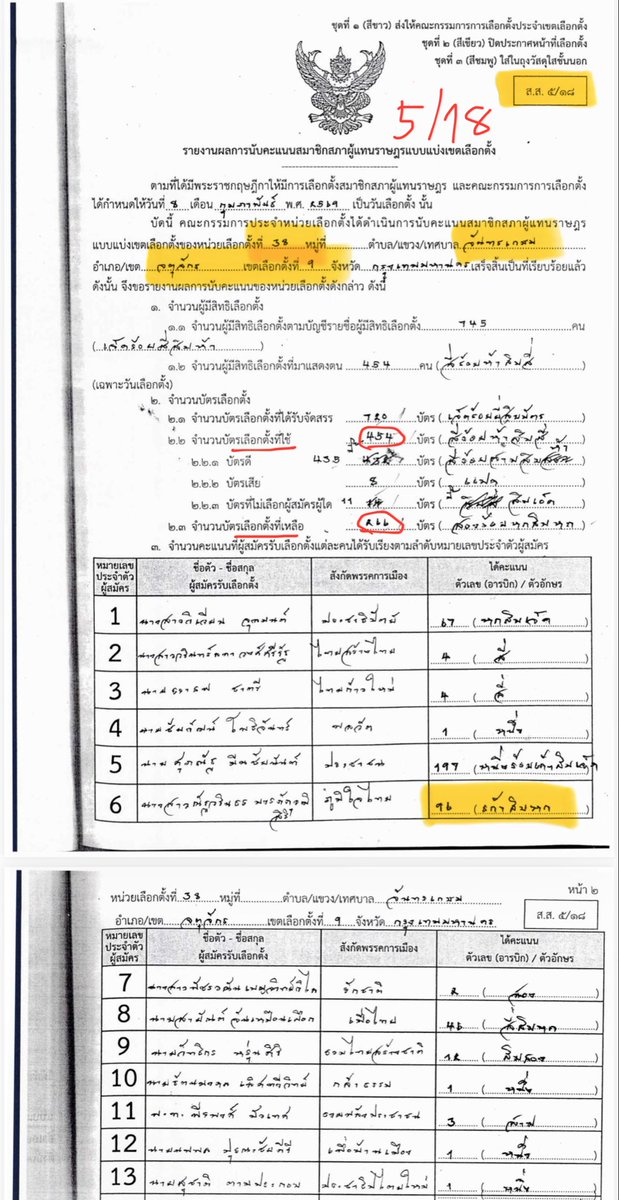 ชุดที่ ๑ (สีขาว) ส่งให้คณะกรรมการการเลือกตั้งประจำเขตเลือกตั้ง
ชุดที่ ๒ (สีเขียว) ปิดประกาศหน้าที่เลือกตั้ง
ชุดที่ ๓ (สีชมพู) ใส่ในถุงวัสดุใสชั้นนอก
ส.ส. ๕/๑๘
5/18
รายงานผลการนับคะแนนสมาชิกสภาผู้แทนราษฎรแบบแบ่งเขตเลือกตั้ง
ตามที่ได้มีพระราชกฤษฎีกาให้มีการเลือกตั้งสมาชิกสภาผู้แทนราษฎร และคณะกรรมการการเลือกตั้ง
ได้กำหนดให้วันที่ 8 เดือน กุมภาพันธ์ พ.ศ. ๒๕๖๙ เป็นวันเลือกตั้ง นั้น
บัดนี้ คณะกรรมการประจำหน่วยเลือกตั้งได้ดำเนินการนับคะแนนสมาชิกสภาผู้แทนราษฎร
แบบแบ่งเขตเลือกตั้งของหน่วยเลือกตั้งที่ 38 หมู่ที่ ตำบล/แขวง/เทศบาล จันทรเกษม
อำเภอ/เขต จตุจักร เขตเลือกตั้งที่ 9 จังหวัด กรุงเทพมหานคร เสร็จสิ้นเป็นที่เรียบร้อยแล้ว
ดังนั้น จึงขอรายงานผลการนับคะแนนของหน่วยเลือกตั้งดังกล่าว ดังนี้
๑. จำนวนผู้มีสิทธิเลือกตั้ง
๑.๑ จำนวนผู้มีสิทธิเลือกตั้งตามบัญชีรายชื่อผู้มีสิทธิเลือกตั้ง 745 คน
(เจ็ดร้อยสี่สิบห้า)
๑.๒ จำนวนผู้มีสิทธิเลือกตั้งที่มาแสดงตน 454 คน (สี่ร้อยห้าสิบสี่
(เฉพาะวันเลือกตั้ง)
๒. จำนวนบัตรเลือกตั้ง
๒.๑ จำนวนบัตรเลือกตั้งที่ได้รับจัดสรร 720 บัตร (เจ็ดร้อยยี่สิบบัตร)
๒.๒ จำนวนบัตรเลือกตั้งที่ใช้ 454 บัตร (สี่ร้อยห้าสิบสี่)
๒.๒.๑ บัตรดี 435 บัตร (สี่ร้อยสามสิบห้า)
๒.๒.๒ บัตรเสีย 8 บัตร (แปด)
๒.๒.๓ บัตรที่ไม่เลือกผู้สมัครผู้ใด 11 บัตร (สิบเอ็ด)
๒.๓ จำนวนบัตรเลือกตั้งที่เหลือ 266 บัตร (สองร้อยหกสิบหก)
๓. จำนวนคะแนนที่ผู้สมัครรับเลือกตั้งแต่ละคนได้รับเรียงตามลำดับหมายเลขประจำตัวผู้สมัคร
หมายเลขประจำตัวผู้สมัคร ชื่อตัว - ชื่อสกุล ผู้สมัครรับเลือกตั้ง สังกัดพรรคการเมือง ได้คะแนน ตัวเลข (อารบิก) / ตัวอักษร
1 ประชาธิปัตย์ 67 (หกสิบเจ็ด)
2 ไทยสร้างไทย 4 (สี่)
3 ไทยก้าวใหม่ 4 (สี่)
4 พลวัต 1 (หนึ่ง)
5 ประชาชน 197 (หนึ่งร้อยเก้าสิบเจ็ด
6 ภูมิใจไทย 96 (เก้าสิบหก)
หน่วยเลือกตั้งที่ 38 หมู่ที่ ตำบล/แขวง/เทศบาล จันทรเกษม หน้า ๒
อำเภอ/เขต จตุจักร เขตเลือกตั้งที่ 9 จังหวัด กรุงเทพมหานคร ส.ส. ๕/๑๘
หมายเลขประจำตัวผู้สมัคร ชื่อตัว - ชื่อสกุล ผู้สมัครรับเลือกตั้ง สังกัดพรรคการเมือง ได้คะแนน ตัวเลข (อารบิก) / ตัวอักษร
7 รักชาติ 2 (สอง)
8 เพื่อไทย 46 (สี่สิบหก)
9 รวมไทยสร้างชาติ 12 (สิบสอง)
10 กล้าธรรม 1 (หนึ่ง)
11 3 (สาม)
12 เพื่อบ้านเมือง 1 (หนึ่ง)
13 ประชาธิปไตยใหม่ 1 (หนึ่ง)